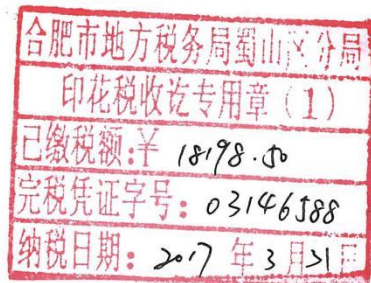 合肥市地方税务局蜀山区分局
印花税收讫专用章（1）
已缴税额:￥ 18198.50
完税凭证字号: 03146588
纳税日期: 2017 年 3 月21日